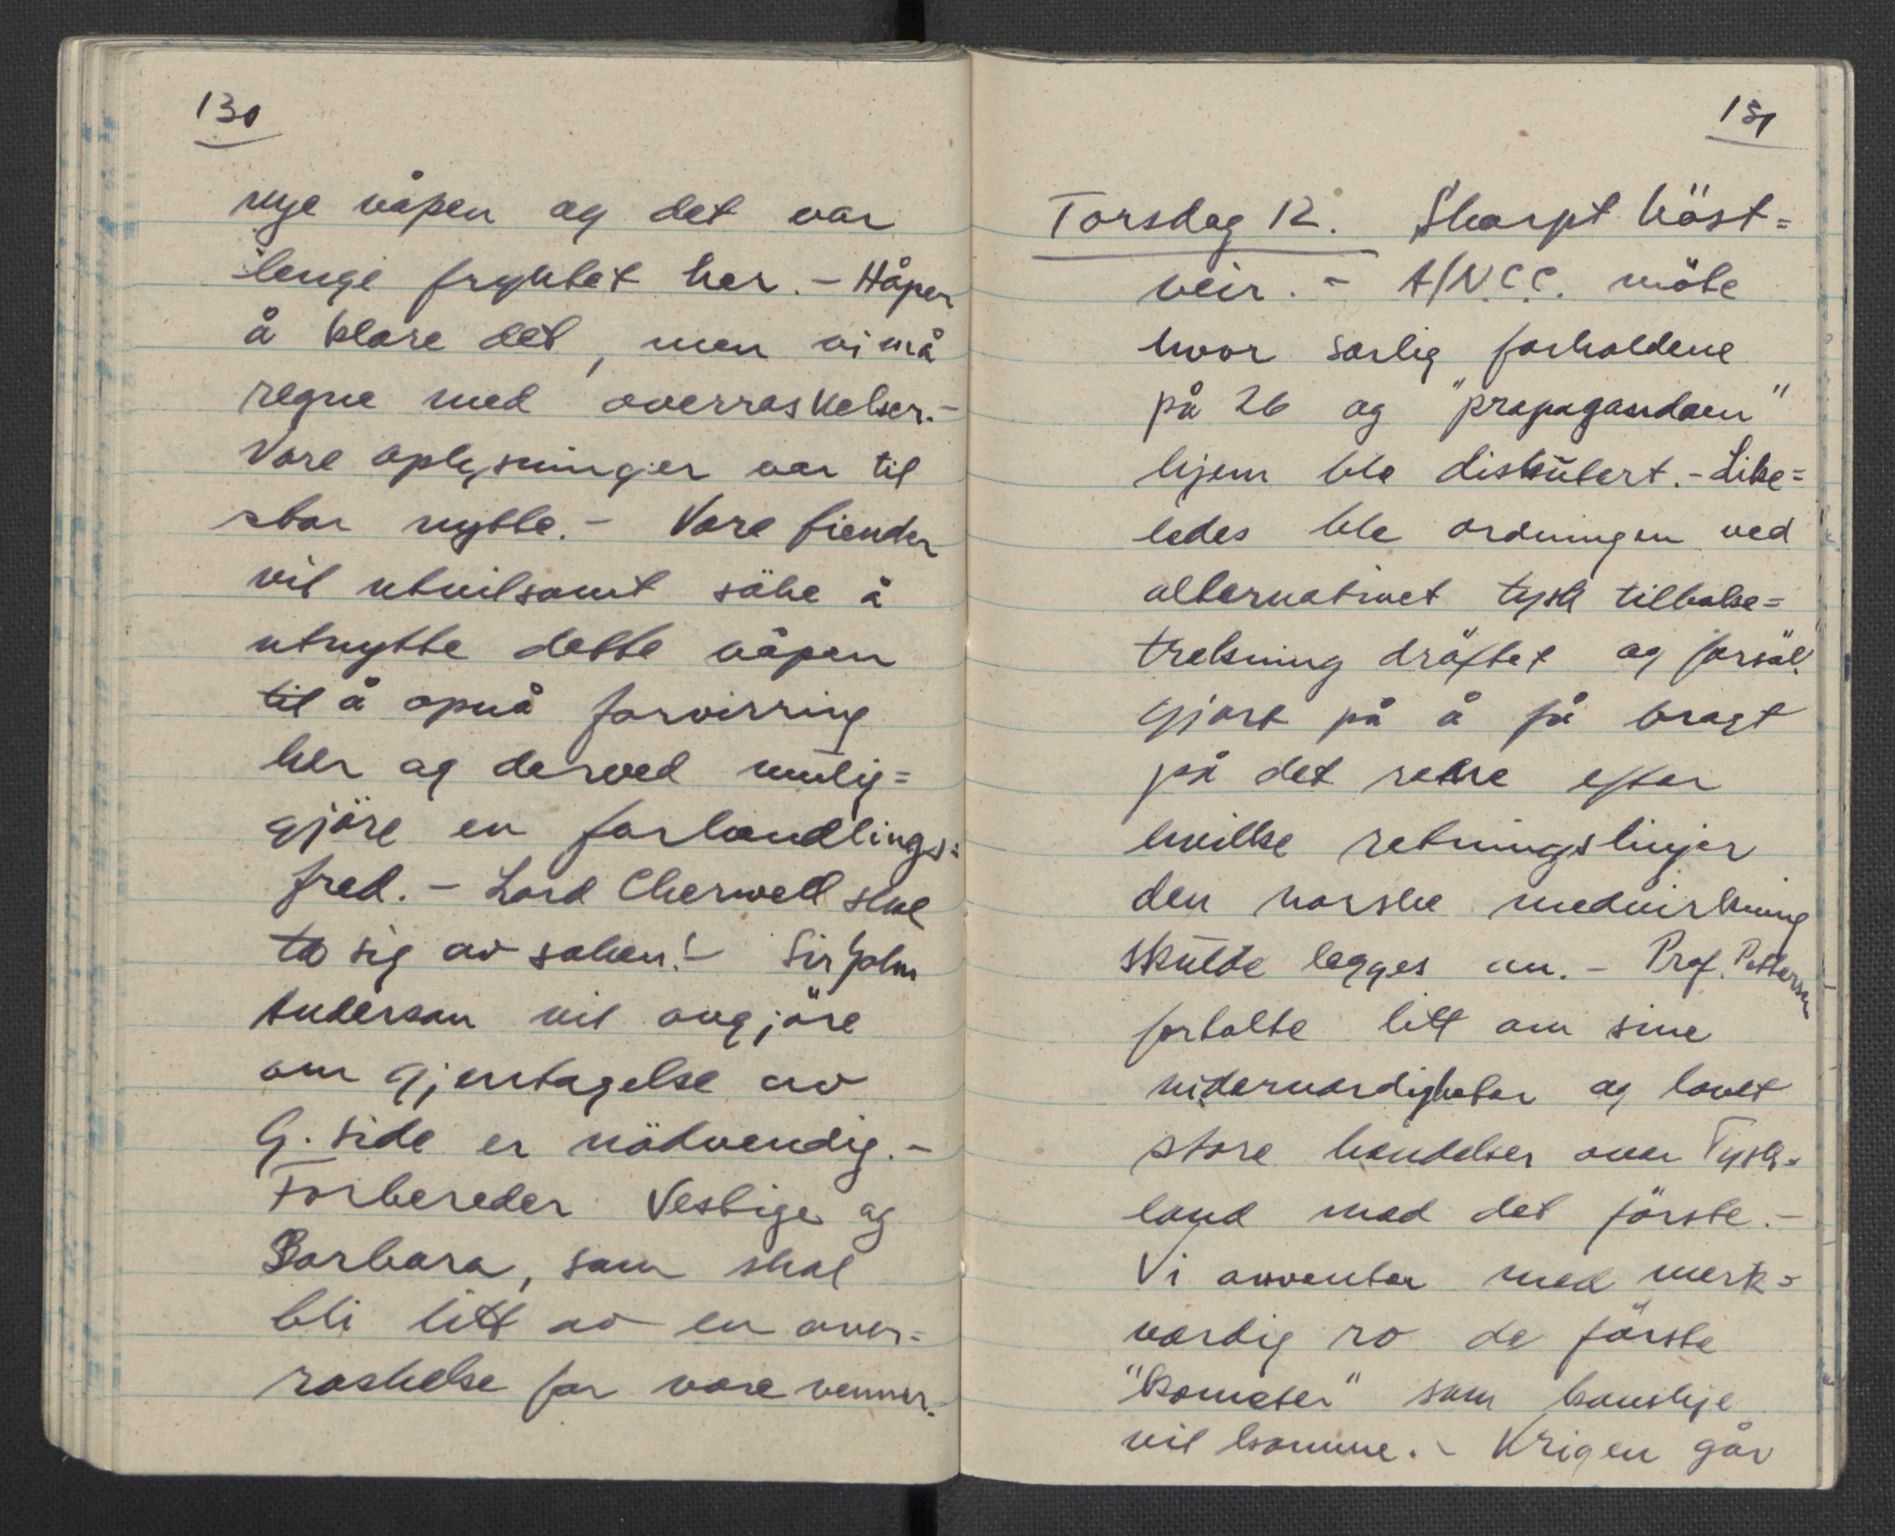 130
nye våpen og det var
lenge fryktet her. – Håper
å klare det, men vi må
regne med overraskelser. –
Våre oplysninger var til
stor nytte. – Våre fiender
vil utvilsomt söke å
utnytte dette våpen
til å opnå forvirring
her og derved mulig=
gjöre en forhandlings=
fred. – Lord Cherwell skal
ta sig av saken! – Sir John
Anderson vil avgjöre
om gjentagelse av
G. side er nödvendig. –
Forbereder Vestige og
Barbara, som skal
bli litt av en over=
raskelse for våre venner. –
131
Torsdag 12. Skarpt höst=
veir. – A/N.C.C. möte
hvor særlig forholdene
på 26 og "propagandaen"
hjem ble diskutert. – Like=
ledes ble ordningen ved
alternativet tysk tilbake=
trekning dröftet og forsök
gjort på å få bragt
på det rene efter
hvilke retningslinjer
den norske medvirkning
skulde legges an. – Prof. Pettersen
fortalte litt om sine
viderverdigheter og lovet
store hendelser over Tysk=
land med det förste. –
Vi avventer med merk=
verdig ro de förste
"kometer" som kanskje
vil komme. – Krigen går